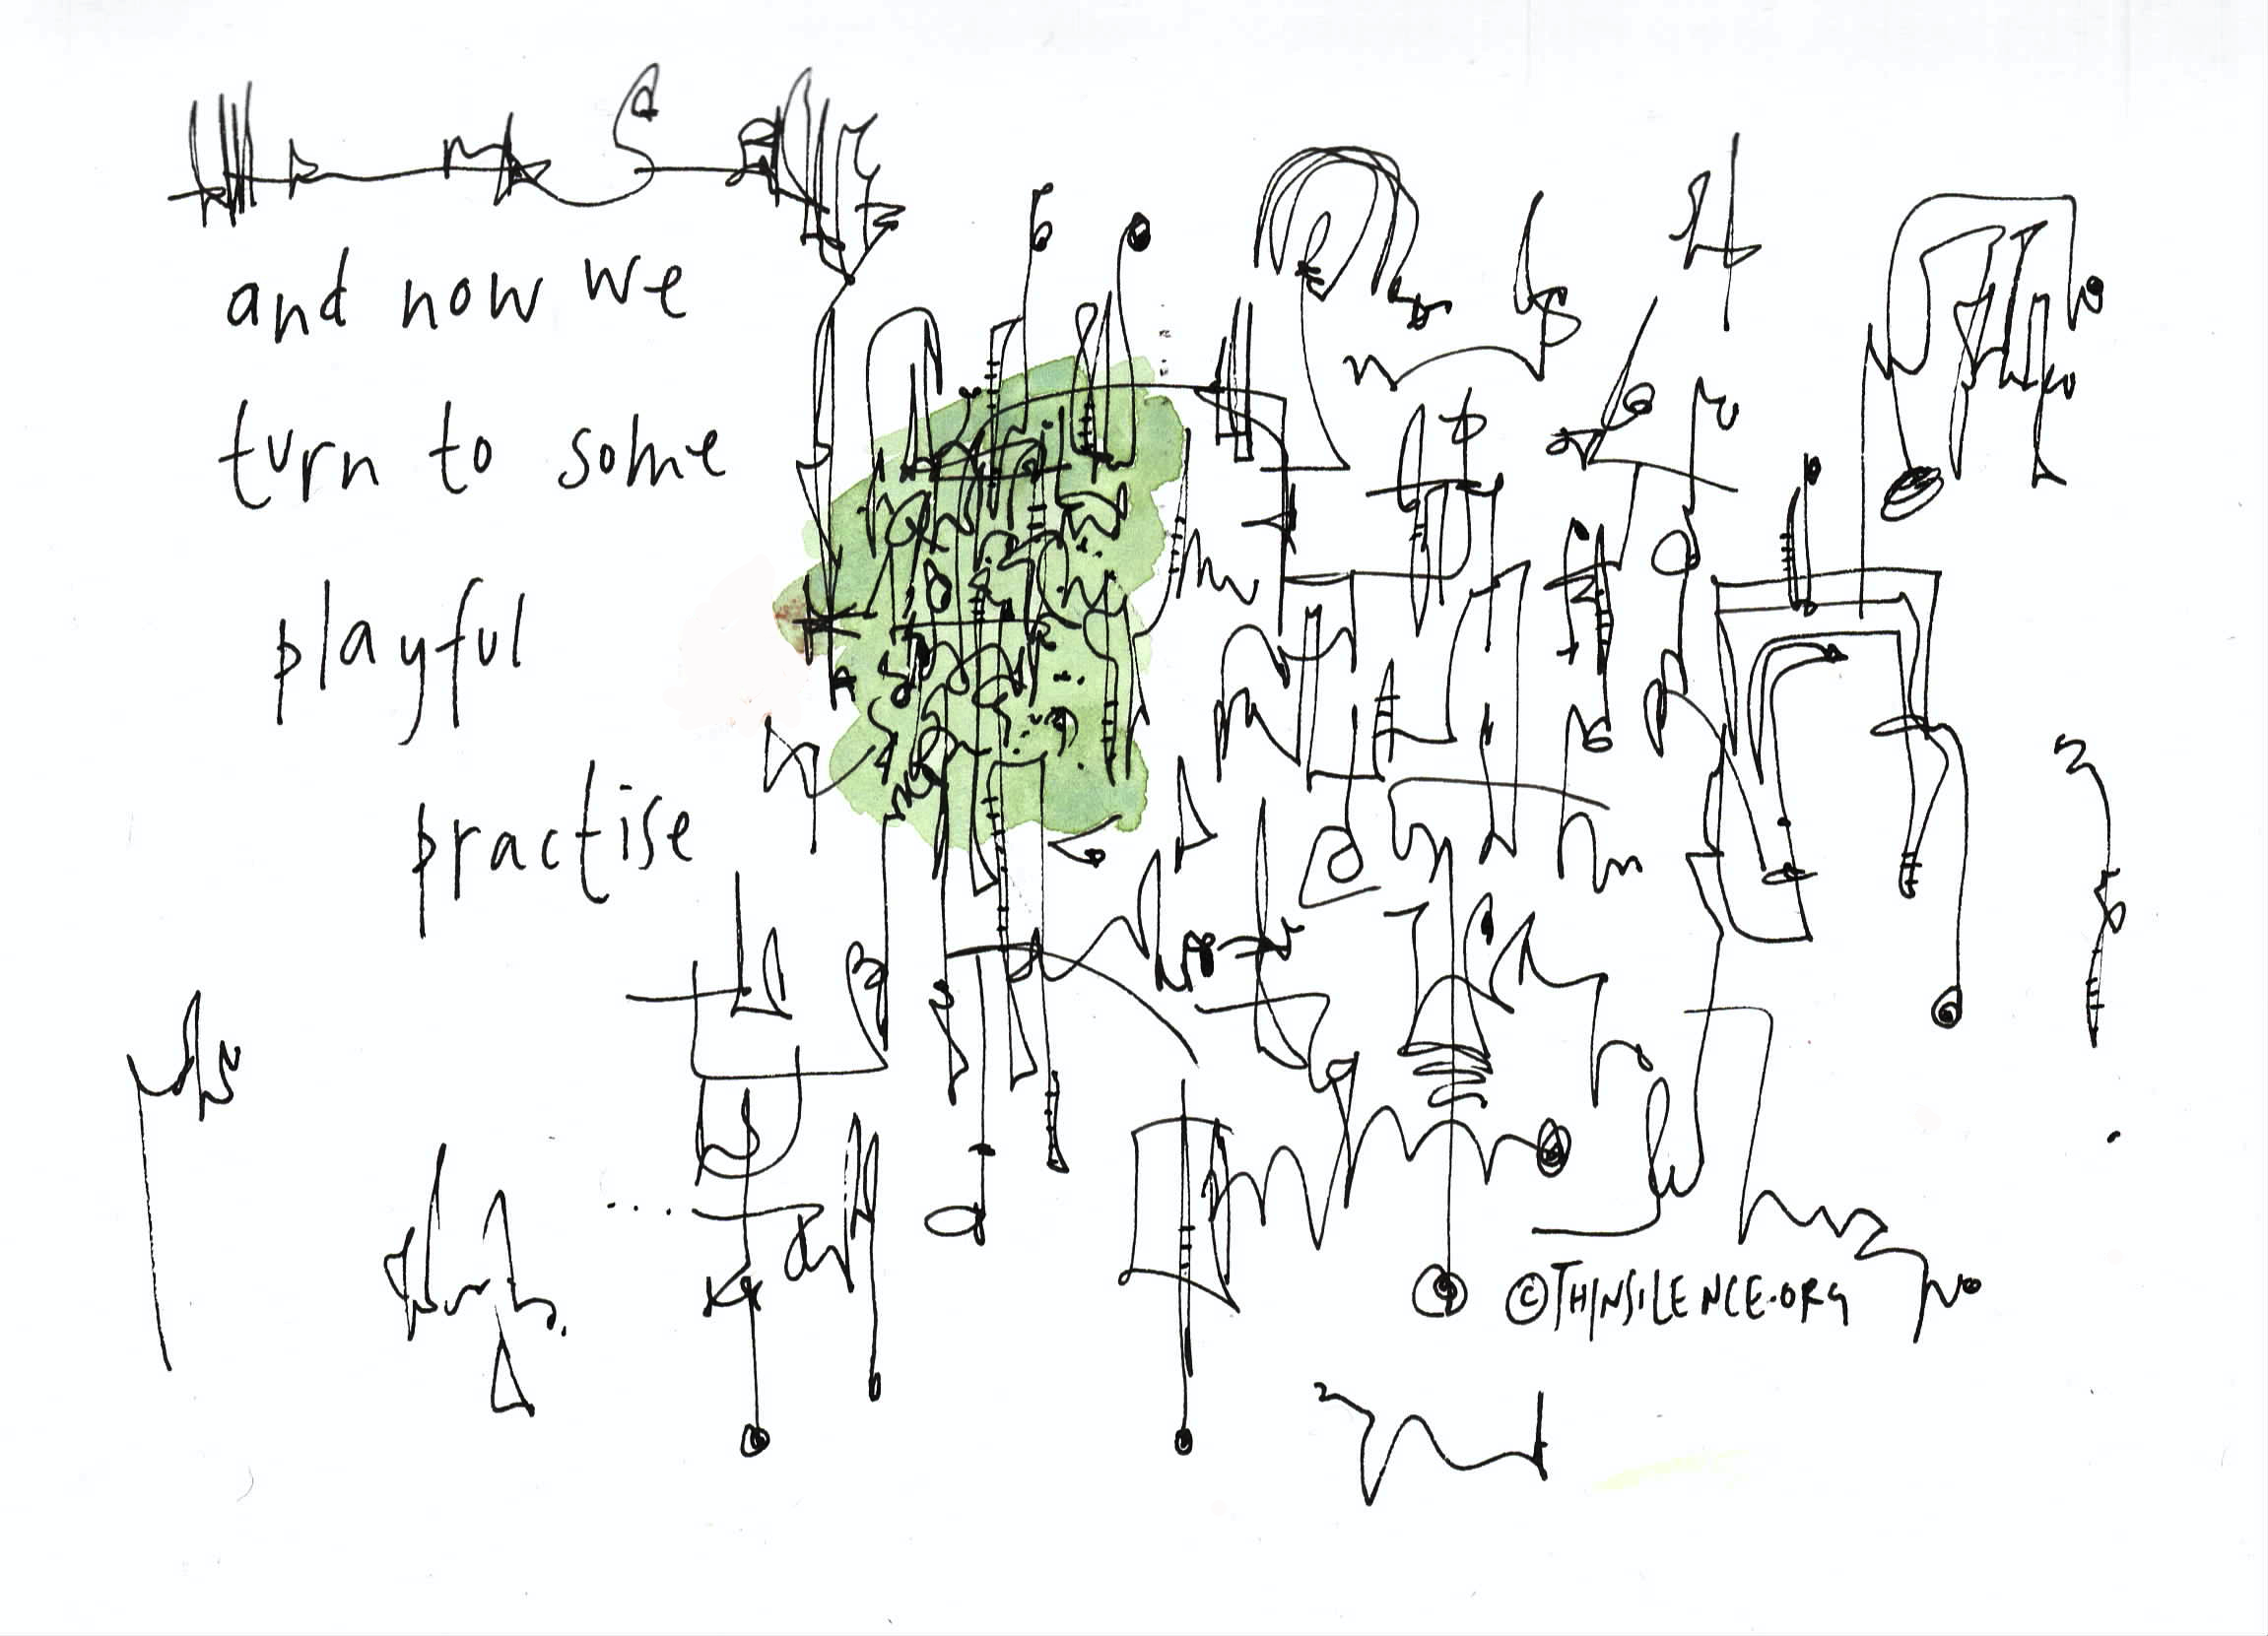 and now we
turn to some
playful
practise
©THINSILENCE.ORG